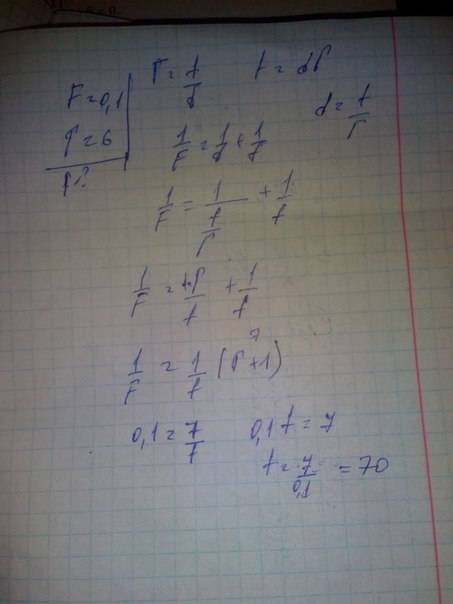 F = 0,1
Г = 6
f?
Г = f/d    f = dГ
d = f/Г
1/F = 1/d + 1/f
1/F = 1/(f/Г) + 1/f
1/F = Г/f + 1/f
1/F = 1/f (Г+1) 7
0,1 = 7/f    0,1 f = 7
f = 7/0,1 = 70